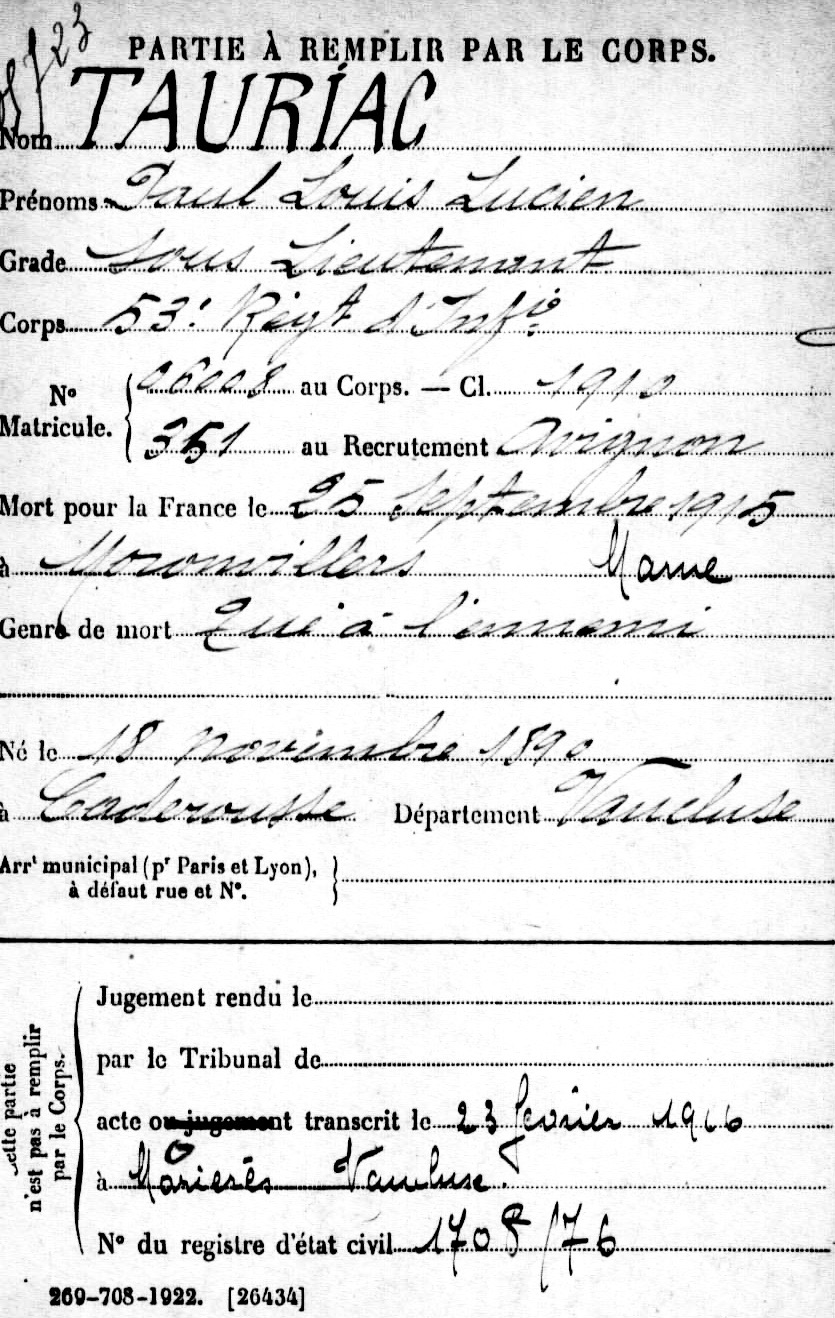 PARTIE À REMPLIR PAR LE CORPS.
Nom TAURIAC
Prénoms Paul Louis Lucien
Grade Sous Lieutenant
Corps 53e Régt d'Infie
No Matricule. 06008 au Corps. — Cl. 1910
351 au Recrutement Avignon
Mort pour la France le 25 Septembre 1915
à Moronvillers Marne
Genre de mort Tué à l'ennemi
Né le 18 Novembre 1890
à Caderousse Département Vaucluse
Arrt municipal (pr Paris et Lyon),
à défaut rue et No.
Jugement rendu le
par le Tribunal de
acte ou jugement transcrit le 23 février 1916
à Vaucluse.
No du registre d'état civil 1708/76
Cette partie
n'est pas à remplir
par le Corps.
269-708-1922. [26434]